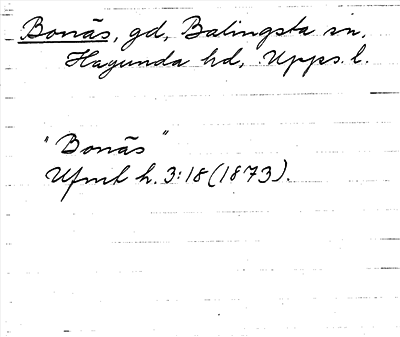 Bonäs, gd, Balingsta sn,
Hagunda hd, Upps. l.
"Bonäs"
Ufmt h. 3:18 (1873).